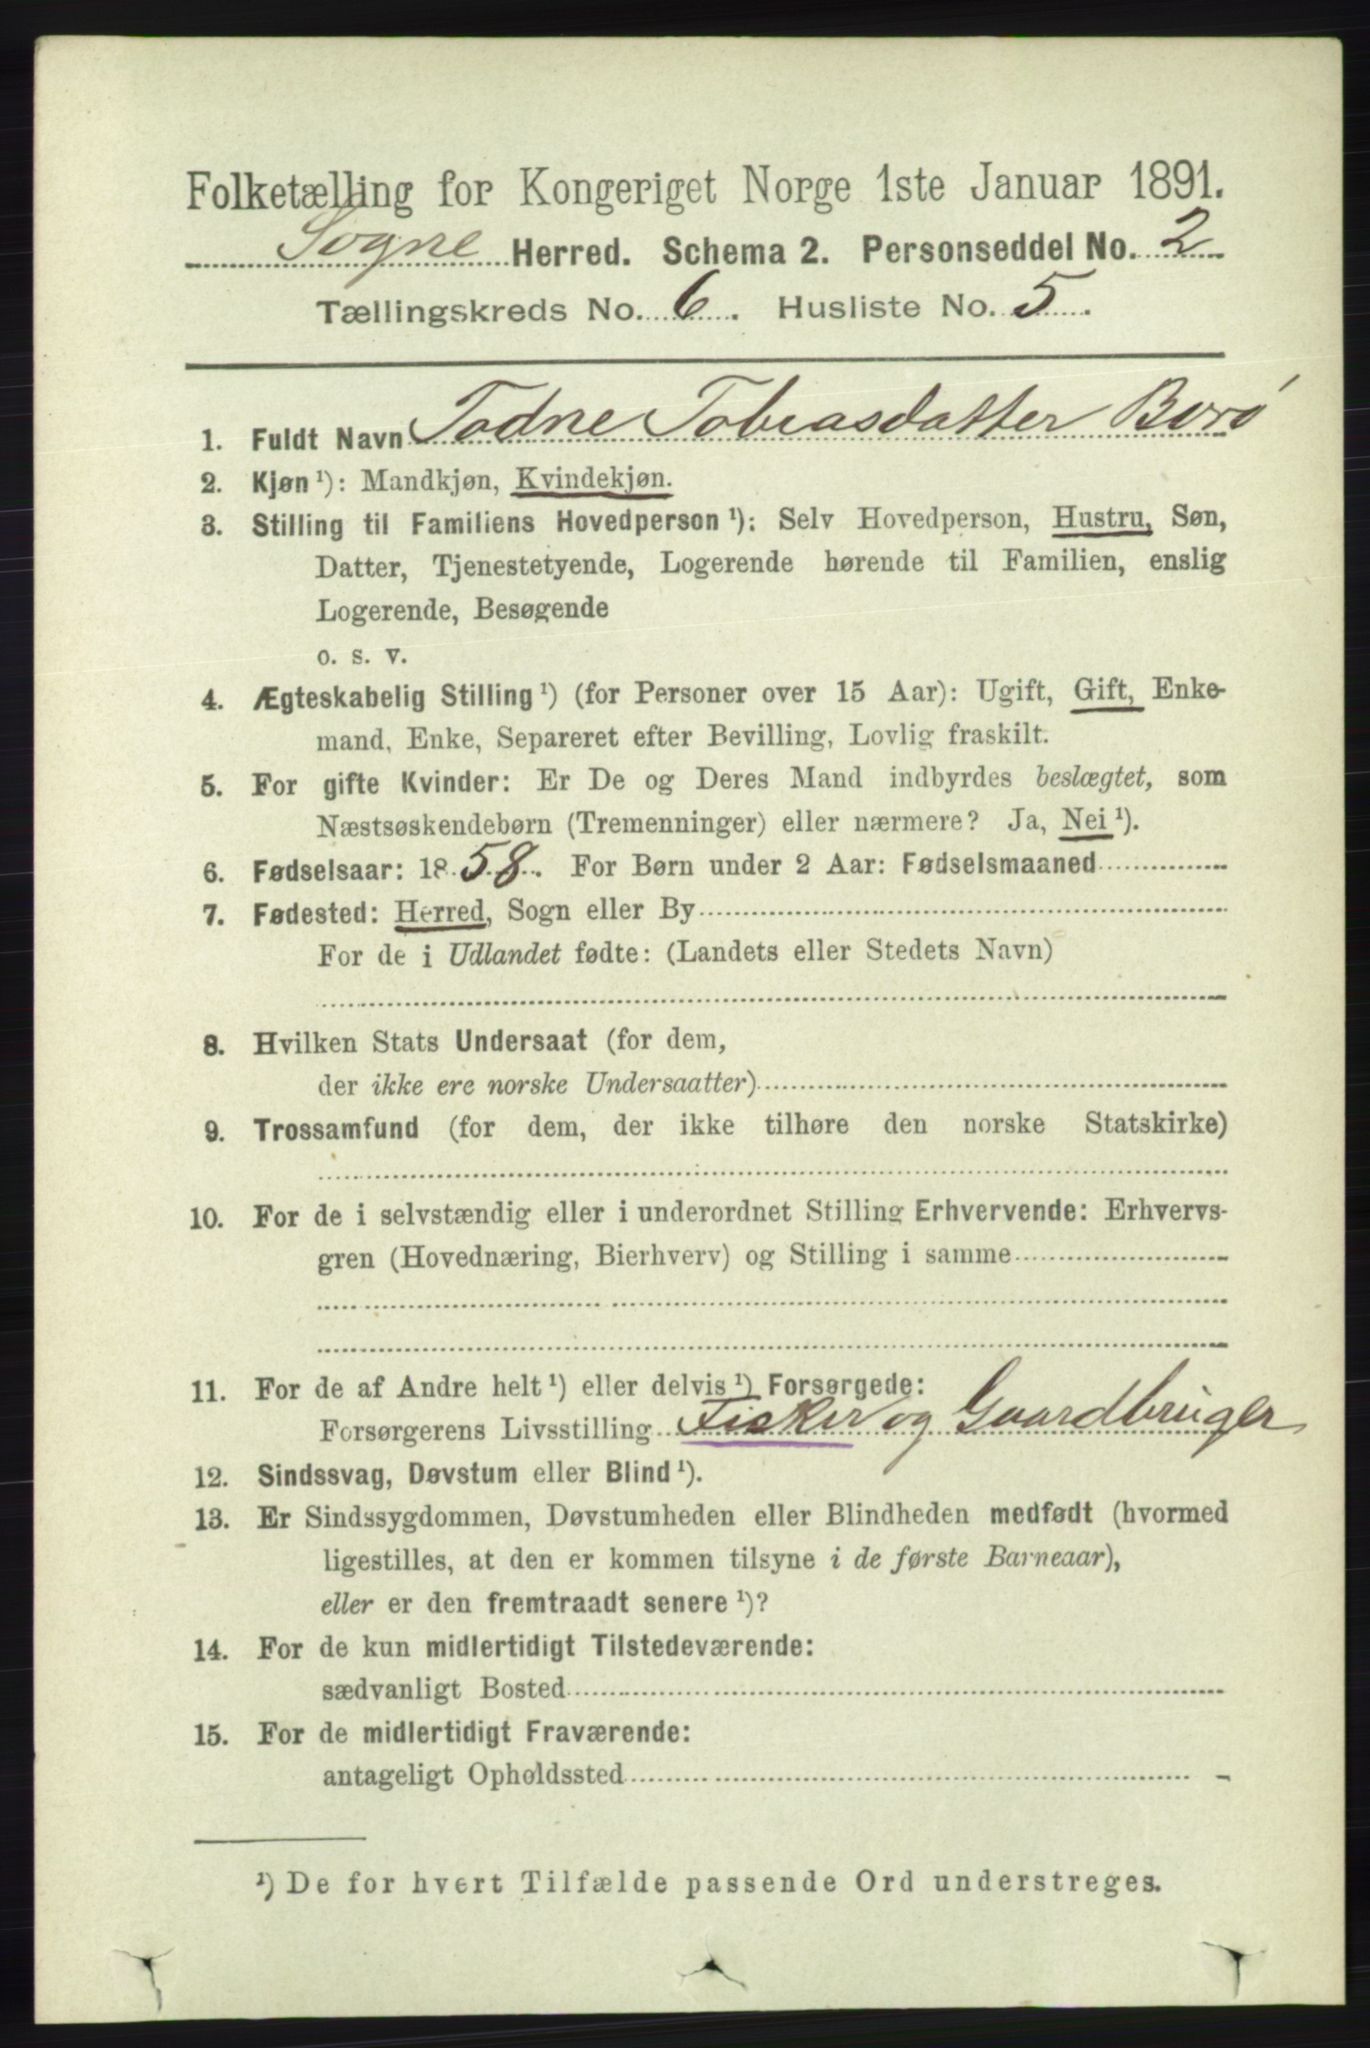 Folketælling for Kongeriget Norge 1ste Januar 1891.
Sogne Herred. Schema 2. Personseddel No. 2
Tællingskreds No. 6. Husliste No. 5.
1. Fuldt Navn Todne Tobiasdatter Borø
2. Kjøn ¹): Mandkjøn, Kvindekjøn.
3. Stilling til Familiens Hovedperson ¹): Selv Hovedperson, Hustru, Søn,
Datter, Tjenestetyende, Logerende hørende til Familien, enslig
Logerende, Besøgende
o. s. v.
4. Ægteskabelig Stilling ¹) (for Personer over 15 Aar): Ugift, Gift, Enke-
mand, Enke, Separeret efter Bevilling, Lovlig fraskilt.
5. For gifte Kvinder: Er De og Deres Mand indbyrdes beslægtet, som
Næstsøskendebørn (Tremenninger) eller nærmere? Ja, Nei ¹).
6. Fødselsaar: 1858. For Børn under 2 Aar: Fødselsmaaned
7. Fødested: Herred, Sogn eller By
For de i Udlandet fødte: (Landets eller Stedets Navn)
8. Hvilken Stats Undersaat (for dem,
der ikke ere norske Undersaatter)
9. Trossamfund (for dem, der ikke tilhøre den norske Statskirke)
10. For de i selvstændig eller i underordnet Stilling Erhvervende: Erhvervs-
gren (Hovednæring, Bierhverv) og Stilling i samme
11. For de af Andre helt ¹) eller delvis ¹) Forsørgede:
Forsørgerens Livsstilling Fisker og Gaardbruger
12. Sindssvag, Døvstum eller Blind ¹).
13. Er Sindssygdommen, Døvstumheden eller Blindheden medfødt (hvormed
ligestilles, at den er kommen tilsyne i de første Barneaar),
eller er den fremtraadt senere ¹)?
14. For de kun midlertidigt Tilstedeværende:
sædvanligt Bosted
15. For de midlertidigt Fraværende:
antageligt Opholdssted
¹) De for hvert Tilfælde passende Ord understreges.